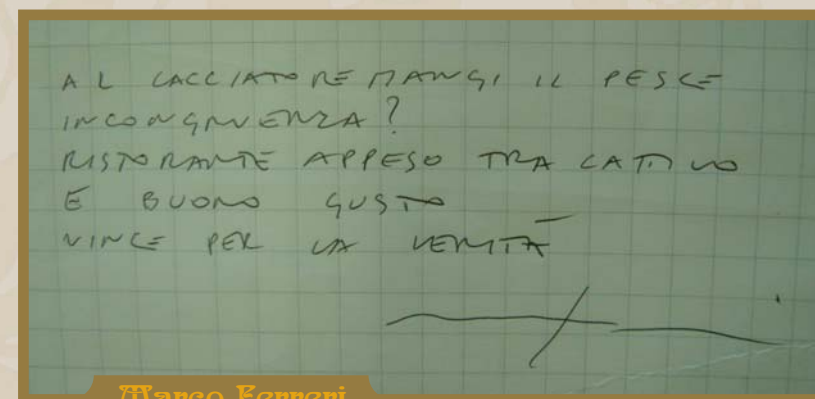 AL CACCIATORE MANGI IL PESCE
INCONGRUENZA?
RISTORANTE APPESO TRA CATTIVO
E BUONO GUSTO
VINCE PER LA VERITÀ
Marco Ferreri